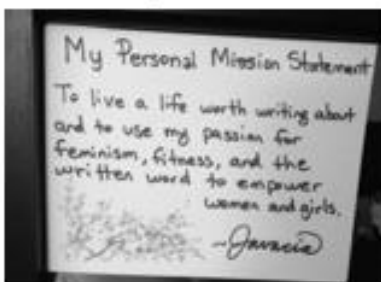 My Personal Mission Statement
To live a life worth writing about
and to use my passion for
feminism, fitness, and the
written word to empower
women and girls.
~Javacia